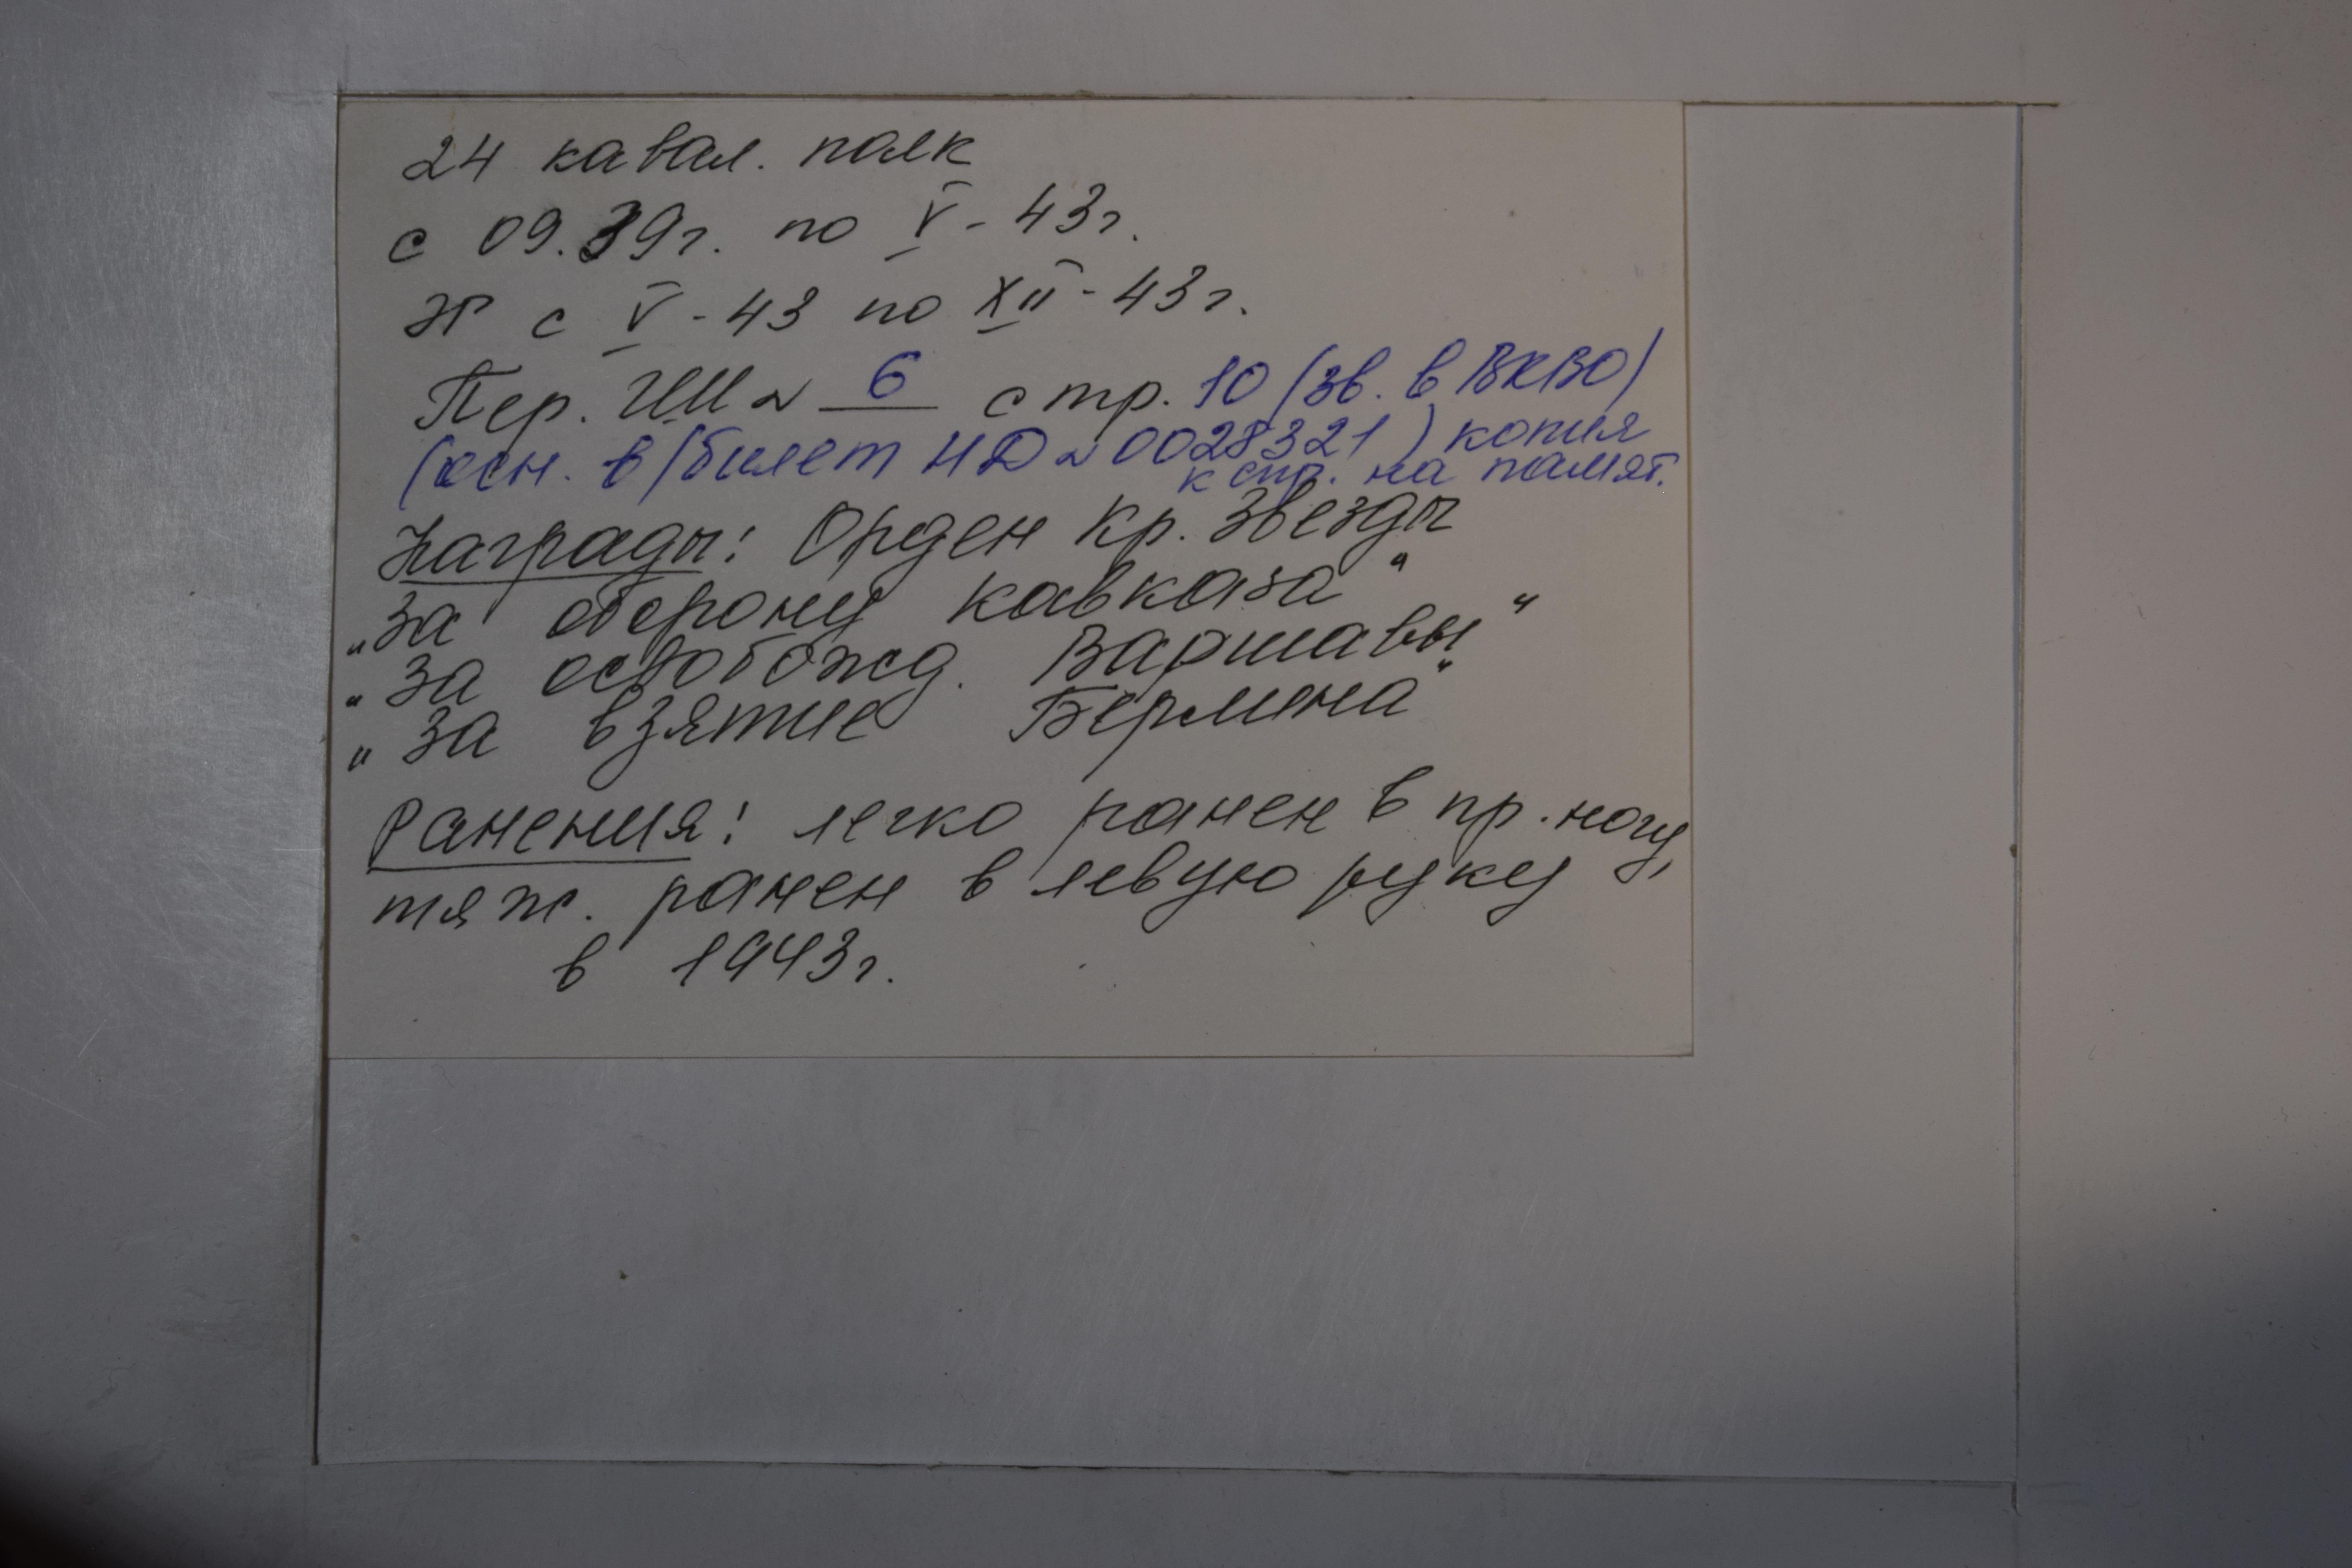 24 кавал. полк
с 09.39г. по V-43г.
ЭГ с V-43 по XII-43г.
Пер. ИИ № 6 стр. 10 (зв. в ВКВО)
(осн. в/билет НД № 0028321) копия
к стр. на памят.
Награды: Орден Кр. Звезды
"За оборону Кавказа"
"За освобожд. Варшавы"
"За взятие Берлина"
Ранения: легко ранен в пр. ногу,
тяж. ранен в левую руку
в 1943г.